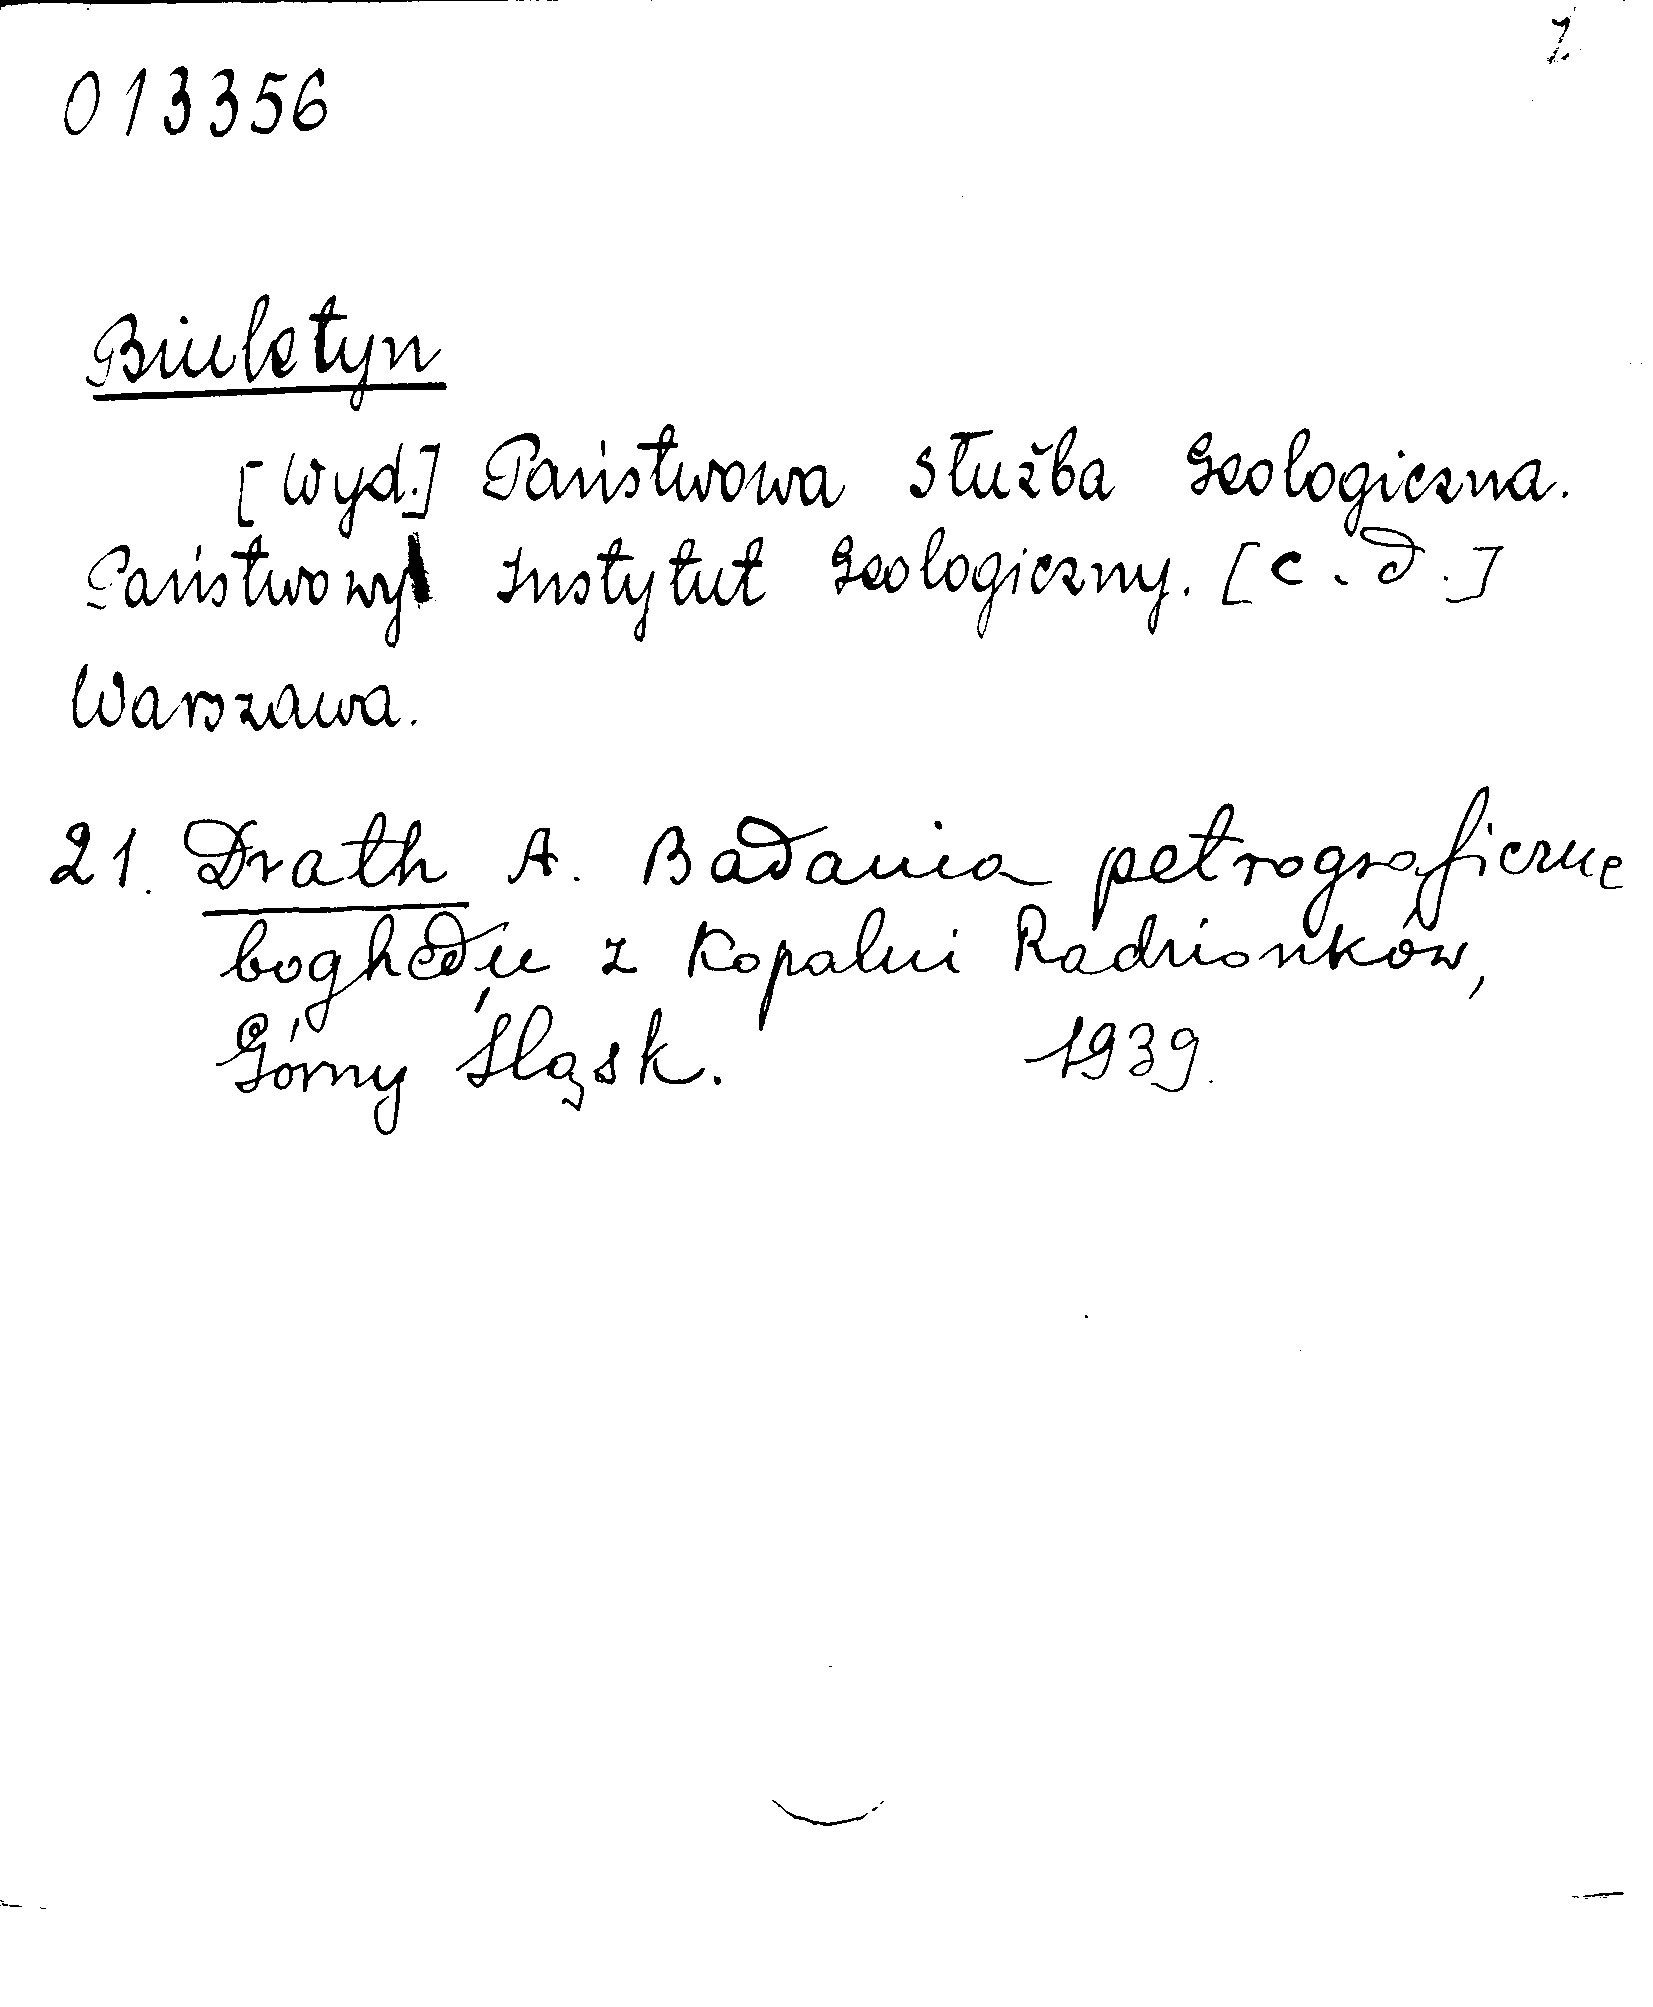 7.
013356
Biuletyn
[Wyd.] Państwowa Służba Geologiczna.
Państwowy Instytut Geologiczny. [c.d.]
Warszawa.
21. Drath A. Badania petrograficzne
boghedu z Kopalni Radzionków,
Górny Śląsk. 1939.